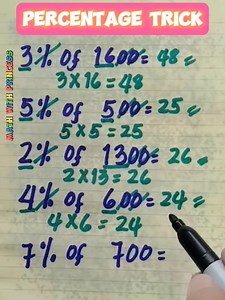 PERCENTAGE TRICK
MATH WITH PRINCESS
3% of 1600 = 48
3 x 16 = 48
5% of 500 = 25
5 x 5 = 25
2% of 1300 = 26
2 x 13 = 26
4% of 600 = 24
4 x 6 = 24
7% of 700 =